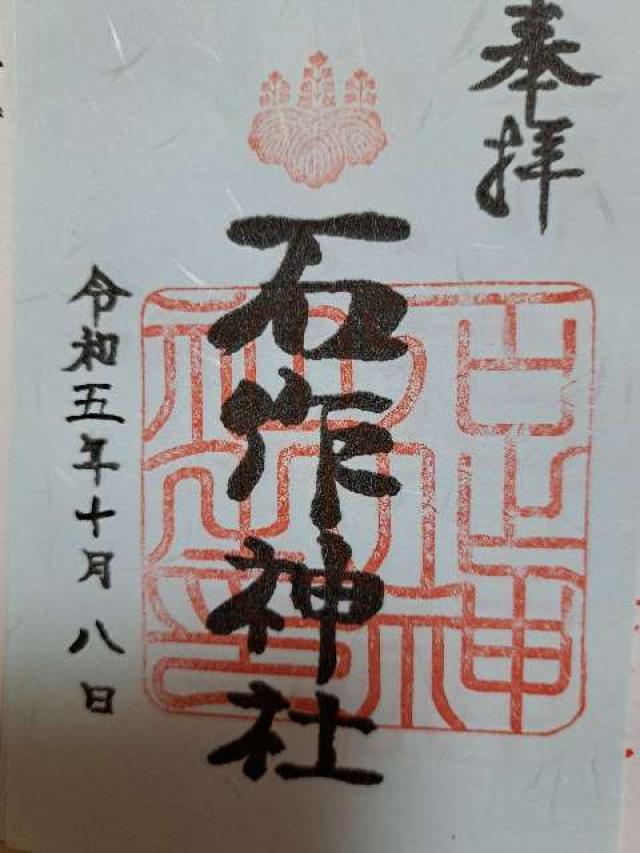 奉拝
石作神社
令和五年十月八日